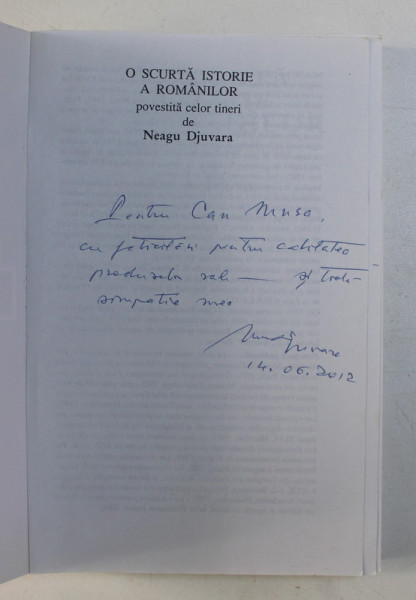 O SCURTĂ ISTORIE
A ROMÂNILOR
povestită celor tineri
de
Neagu Djuvara
Pentru Can Musa,
cu felicitări pentru calitatea
produselor sale — și toată
simpatia mea
Neagu Djuvara
14.06.2012